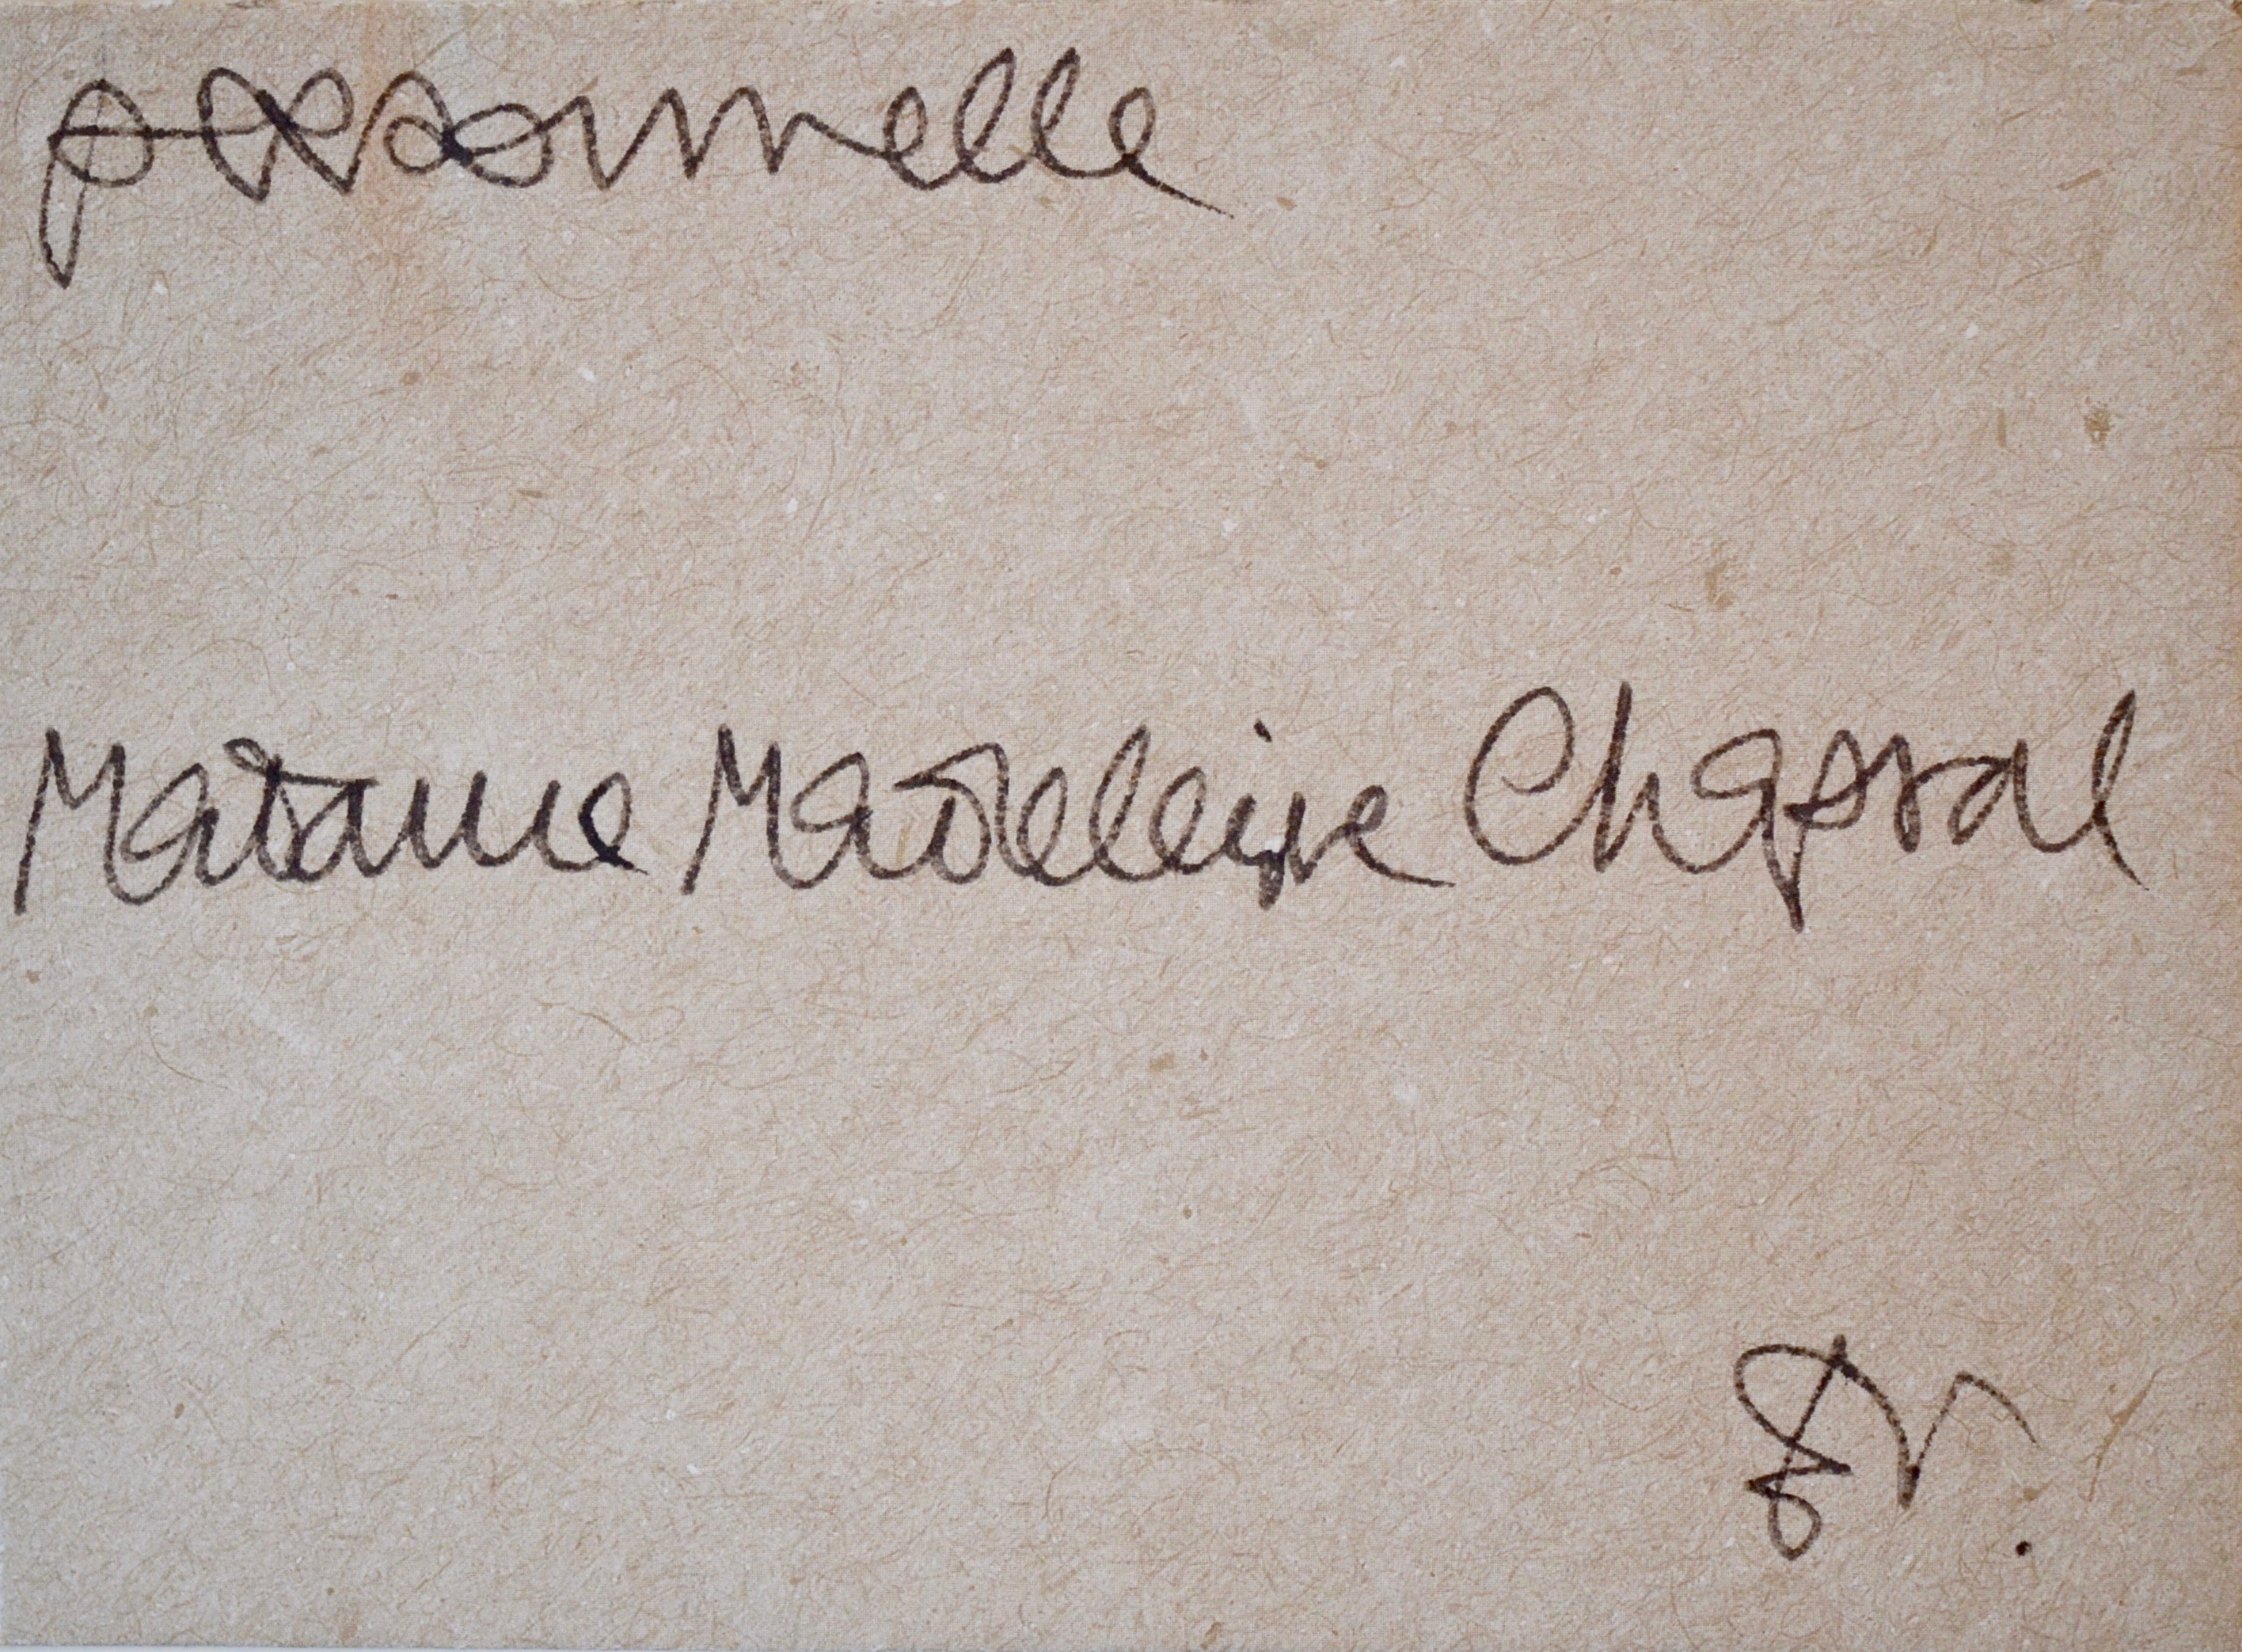 personnelle
Madame Madeleine Chapsal